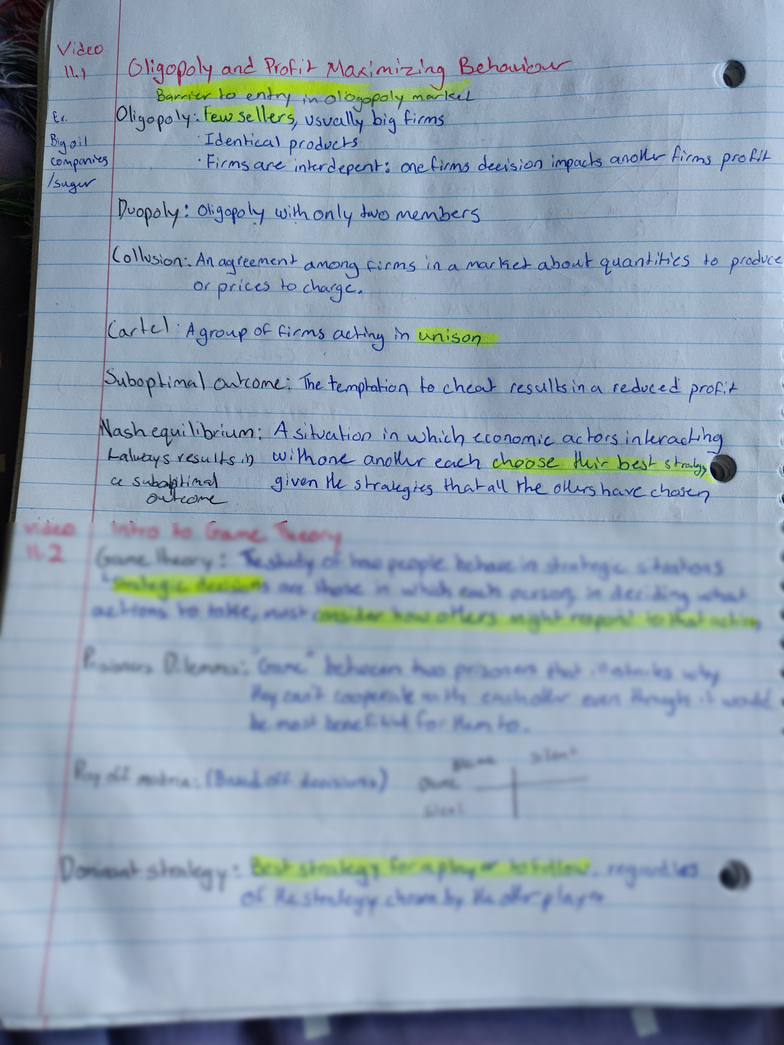 Video
11.1
Oligopoly and Profit Maximizing Behaviour
Barrier to entry in ologopoly market
Ex.
Big oil
companies
/sugar
Oligopoly: Few sellers, usually big firms
· Identical products
· Firms are interdepent: one firms decision impacts another firms profit
Duopoly: Oligopoly with only two members
Collusion: An agreement among firms in a market about quantities to produce
or prices to charge.
Cartel: A group of firms acting in unison
Suboptimal outcome: The temptation to cheat results in a reduced profit
Nash equilibrium: A situation in which economic actors interacting
with one another each choose their best strategy
given the strategies that all the others have chosen
↳always results in
a suboptimal
outcome
Video
11.2
Intro to Game Theory
Game theory: The study of how people behave in strategic situations
"Strategic decisions are those in which each person, in deciding what
actions to take, must consider how others might respond to that action
Prisoners Dilemma: "Game" between two prisoners that why
they can't cooperate with each other even though it would
be most beneficial for them to.
Pay off matrix: (Based off decisions)
silent
silent
Dominant strategy: Best strategy for a player to follow, regardless
of the strategy chosen by the other player